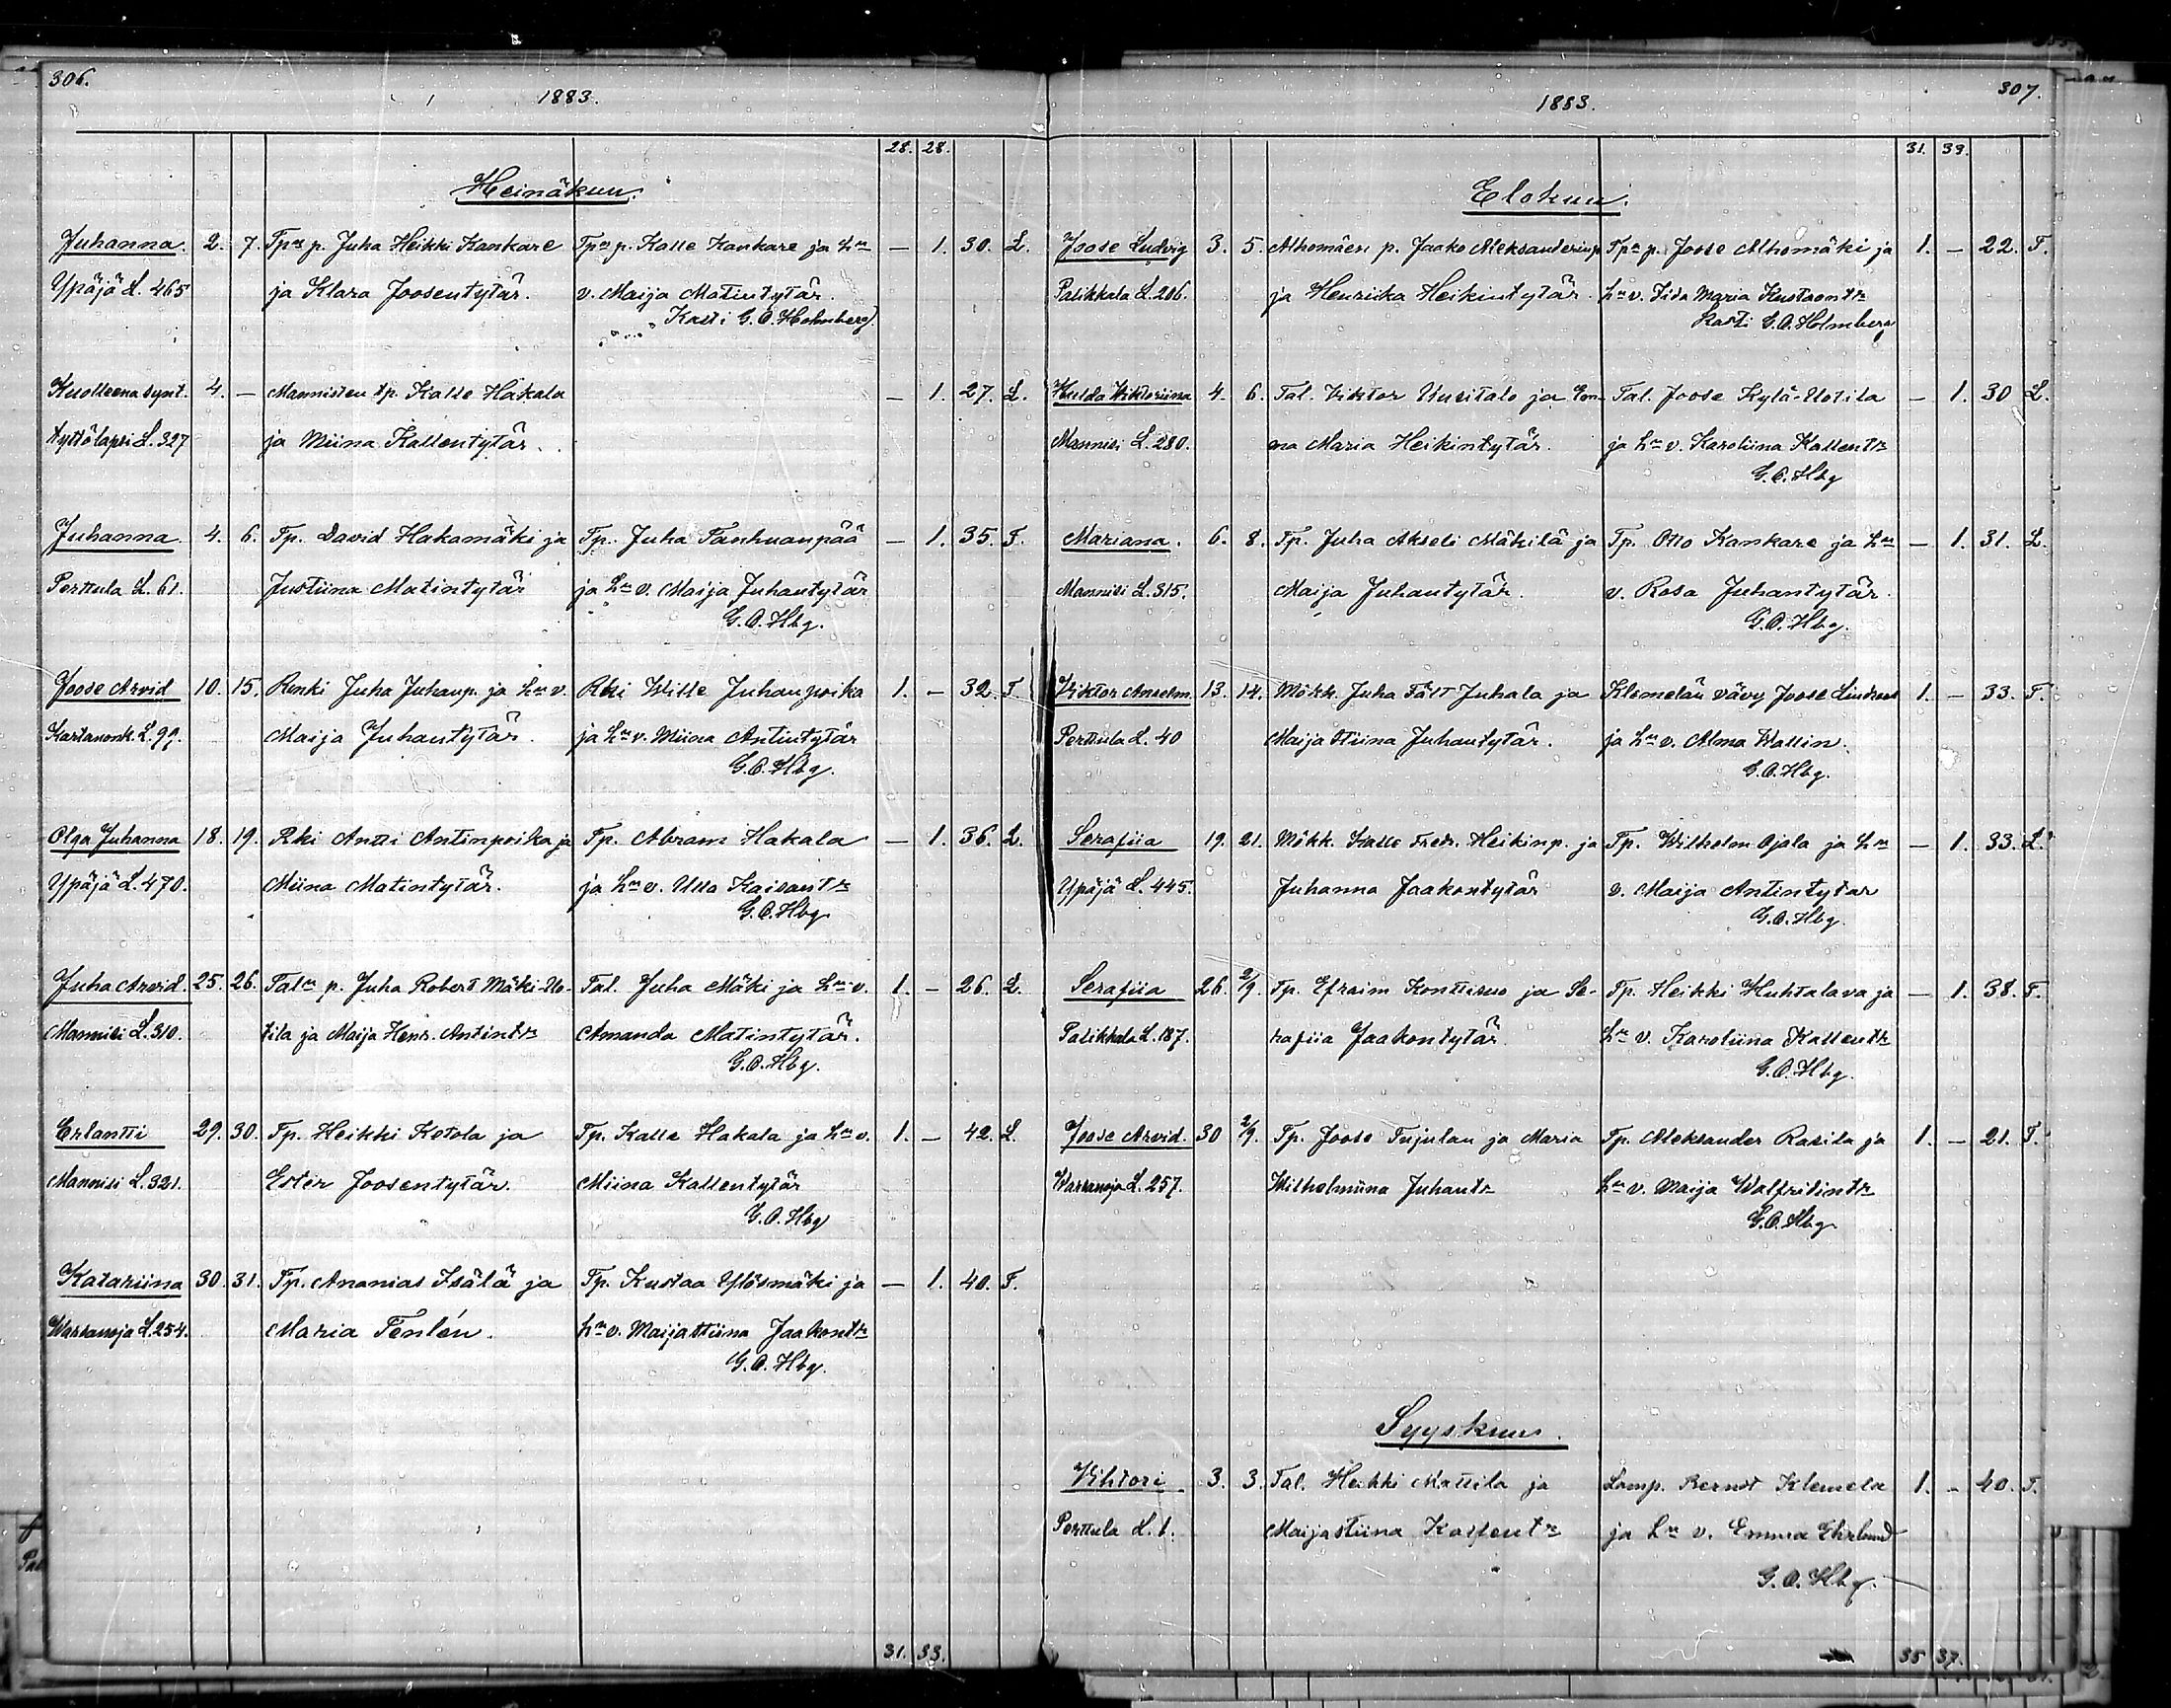 306.
1883.
28. 28.
Heinäkuu.
Juhanna. 2. 7. Tpn p. Juha Heikki Kankare Tpn p. Kalle Kankare ja hn — 1. 30. L.
Ypäjä L. 465 ja Klara Joosentytär. v. Maija Matintytär.
Kasti G. O. Holmberg.
Kuolleena synt. 4. — Mannisten tp. Kalle Hakala — 1. 27. L.
tyttölapsi L. 327 ja Miina Kallentytär.
Juhanna. 4. 6. Tp. David Hakamäki ja Tp. Juha Tanhuanpää — 1. 35. T.
Perttula L. 61. Justiina Matintytär ja hn v. Maija Juhantytär
G. O. Hbg.
Joose Arvid 10. 15. Renki Juha Juhanp. ja hn v. Rki Wille Juhanpoika 1. — 32. T
Kartanonk. L. 99. Maija Juhantytär. ja hn v. Miina Antintytär
G. O. Hbg.
Olga Juhanna 18. 19. Rki Antti Antinpoika ja Tp. Abram Hakala — 1. 36. L.
Ypäjä L. 470. Miina Matintytär. ja hn v. Ulla Kaisantr
G. O. Hbg
Juha Arvid. 25. 26. Taln p. Juha Robert Mäki-Uo- Tal. Juha Mäki ja hn v. 1. — 26. L.
Mannisi L. 310. tila ja Maija Henr. Antintr Amanda Matintytär.
G. O. Hbg.
Erlantti 29. 30. Tp. Heikki Kotola ja Tp. Kalle Hakala ja hn v. 1. — 42. L.
Mannisi L. 321. Ester Joosentytär. Miina Kallentytär
G. O. Hbg
Katariina 30. 31. Tp. Ananias Isälä ja Tp. Kustaa Ylösmäki ja — 1. 40. T.
Warsanoja L. 254. Maria Tenlén. hn v. Maijastiina Jaakontr
G. O. Hbg.
31. 33.
307.
1883.
31. 33.
Elokuu.
Joose Ludvig 3. 5. Alhomäen p. Jaako Aleksanterinp. Tpn p. Joose Alhomäki ja 1. — 22. T.
Palikkala L. 206. ja Henriika Heikintytär. hn v. Iida Maria Kustaantr
Kasti G. O. Holmberg
Hulda Wiktoriina 4. 6. Tal. Viktor Uusitalo ja Em- Tal. Joose Kylä-Uotila — 1. 30 L.
Mannisi L. 280. ma Maria Heikintytär. ja hn v. Karoliina Kallentr
G. O. Hbg
Mariana. 6. 8. Tp. Juha Akseli Mäkilä ja Tp. Otto Kankare ja hn — 1. 31. L.
Mannisi L. 315. Maija Juhantytär. v. Rosa Juhantytär.
G. O. Hbg.
Viktor Anselm. 13. 14. Mökk. Juha Fält Juhala ja Klemelän vävy Joose 1. — 33. T.
Perttula L. 40 Maija Stiina Juhantytär. ja hn v. Alma Wallin.
G. O. Hbg.
Serafiia 19. 21. Mökk. Kalle Fredr. Heikinp. ja Tp. Wilhelm Ojala ja hn — 1. 33. L.
Ypäjä L. 445. Juhanna Jaakontytär v. Maija Antintytär
G. O. Hbg.
Serafiia 26. 2/9. Tp. Efraim Konttisuo ja Se- Tp. Heikki Huhtalava ja — 1. 38. T.
Palikkala L. 187. rafiia Jaakontytär. hn v. Karoliina Kallentr
G. O. Hbg.
Joose Arvid. 30 2/9. Tp. Joose Tujulan ja Maria Tp. Aleksander Rasila ja 1. — 21. T.
Warsanoja L. 257. Wilhelmiina Juhantr hn v. Maija Walfridintr
G. O. Hbg.
Syyskuu.
Vihtori 3. 3. Tal. Heikki Mattila ja Lamp. Bernt Klemelä 1. — 40. T.
Perttula L. 1. Maijastiina ja hn v. Emma Ehrlund
G. O. Hbg.
35 37.